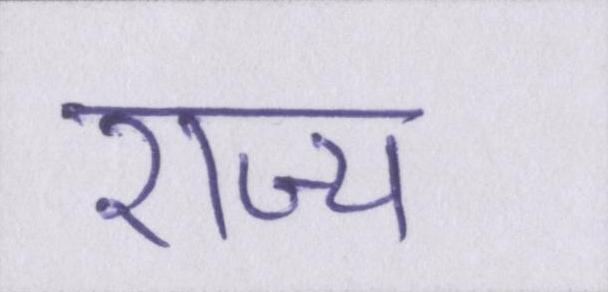 राज्य